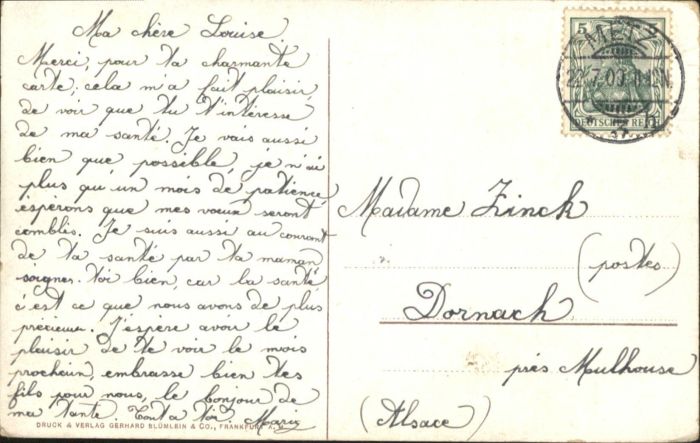 Ma chère Louise
Merci, pour ta charmante
carte; cela m'a fait plaisir
de voir que tu t'intéresse
de ma santé. Je vais aussi
bien que possible, je n'ai
plus qu'un mois de patience
esperons que mes vœux seront
comblés. Je suis aussi au courant
de ta santé par ta maman
soignes toi bien, car la santé
c'est ce que nous avons de plus
précieux. J'espère avoir le
plaisir de te voir le mois
prochain, embrasse bien tes
fils pour nous, le bonjour de
ma tante. Tout a toi Marie
DRUCK & VERLAG GERHARD BLÜMLEIN & CO., FRANKFURT A. M.
5 5
METZ
DEUTSCHES REICH
Madame Zinck
(postes)
Dornach
près Mulhouse
(Alsace)